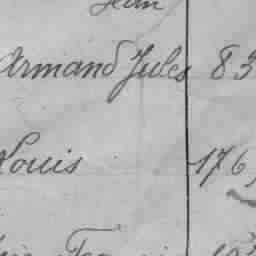 Jean
Armand Jules 83
Louis 176